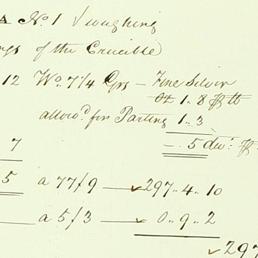 A No 1 Weighing
ngs of the Crucible
12 Wo. 7 1/4 Grs — Fine Silver
Oz 1..8 ⅌ lb
allowd. for Parting 1..3
7 5 dwt. ⅌
5 a 77/9 — 297..4..10
a 5/3 — 0..9..2
297